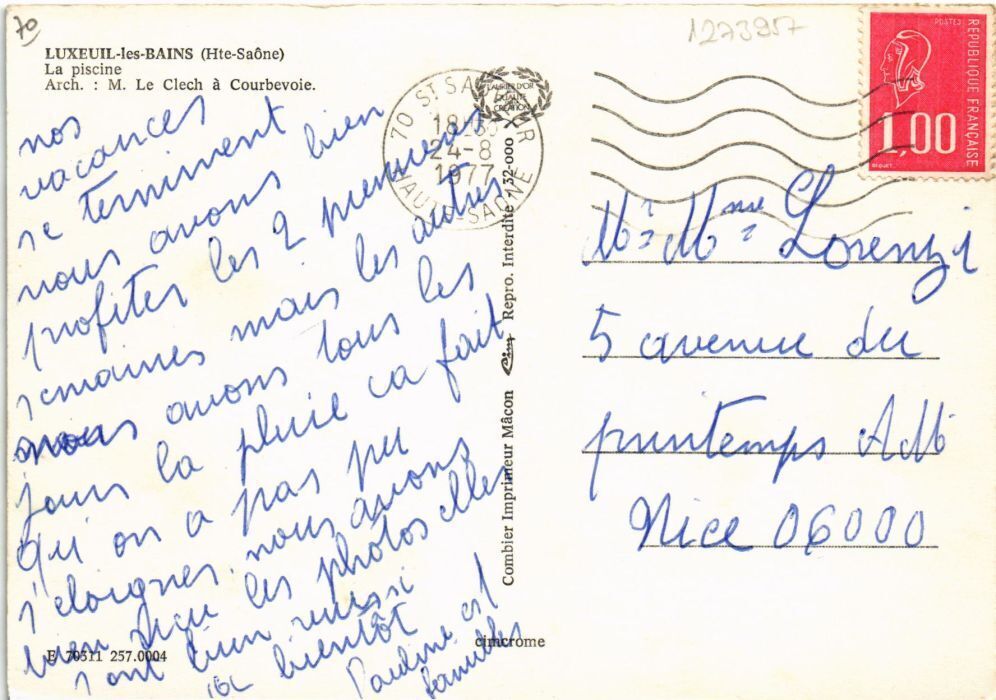 70
1273957
LUXEUIL-les-BAINS (Hte-Saône)
La piscine
Arch. : M. Le Clech à Courbevoie.
nos
vacances
se terminent
nous avons bien
profiter les 2 premieres
semaines mais les autres
nous avons tous les
jours la pluie ca fait
qu on a pas pu
s'eloigner. nous avons
bien recu les photos elles
sont bien reussi
a bientôt
Pauline et
familles
E 70311 257.0004
70 ST SA UR
18-
24-8
1977
HAUTE-SAÔNE
LAURIER D'OR
QUALITÉ
CRÉATION
Combier Imprimeur Mâcon Cim Repro. Interdite 32-000
cimcrome
POSTES
REPUBLIQUE FRANÇAISE
1,00
BEQUET
Mr Mme Lorenzi
5 avenue du
printemps AM
Nice 06000